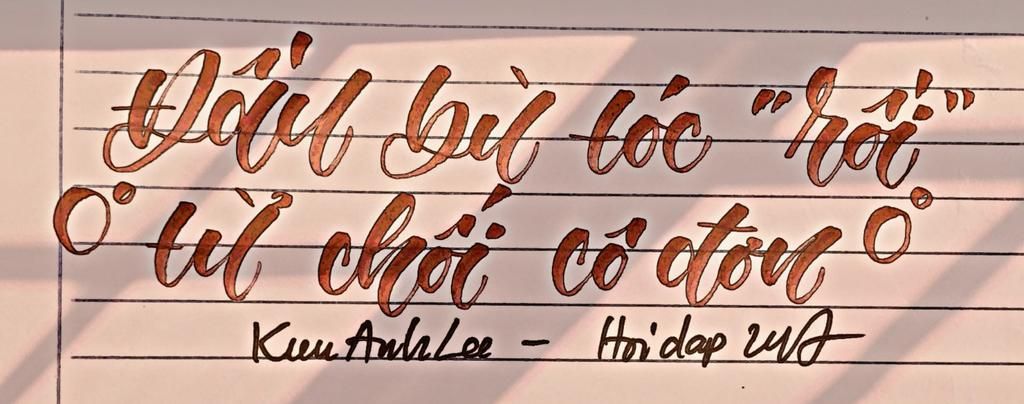 Đầu bù tóc "rối"
từ chối cô đơn
Kim Anh Lee - Hoidap 247